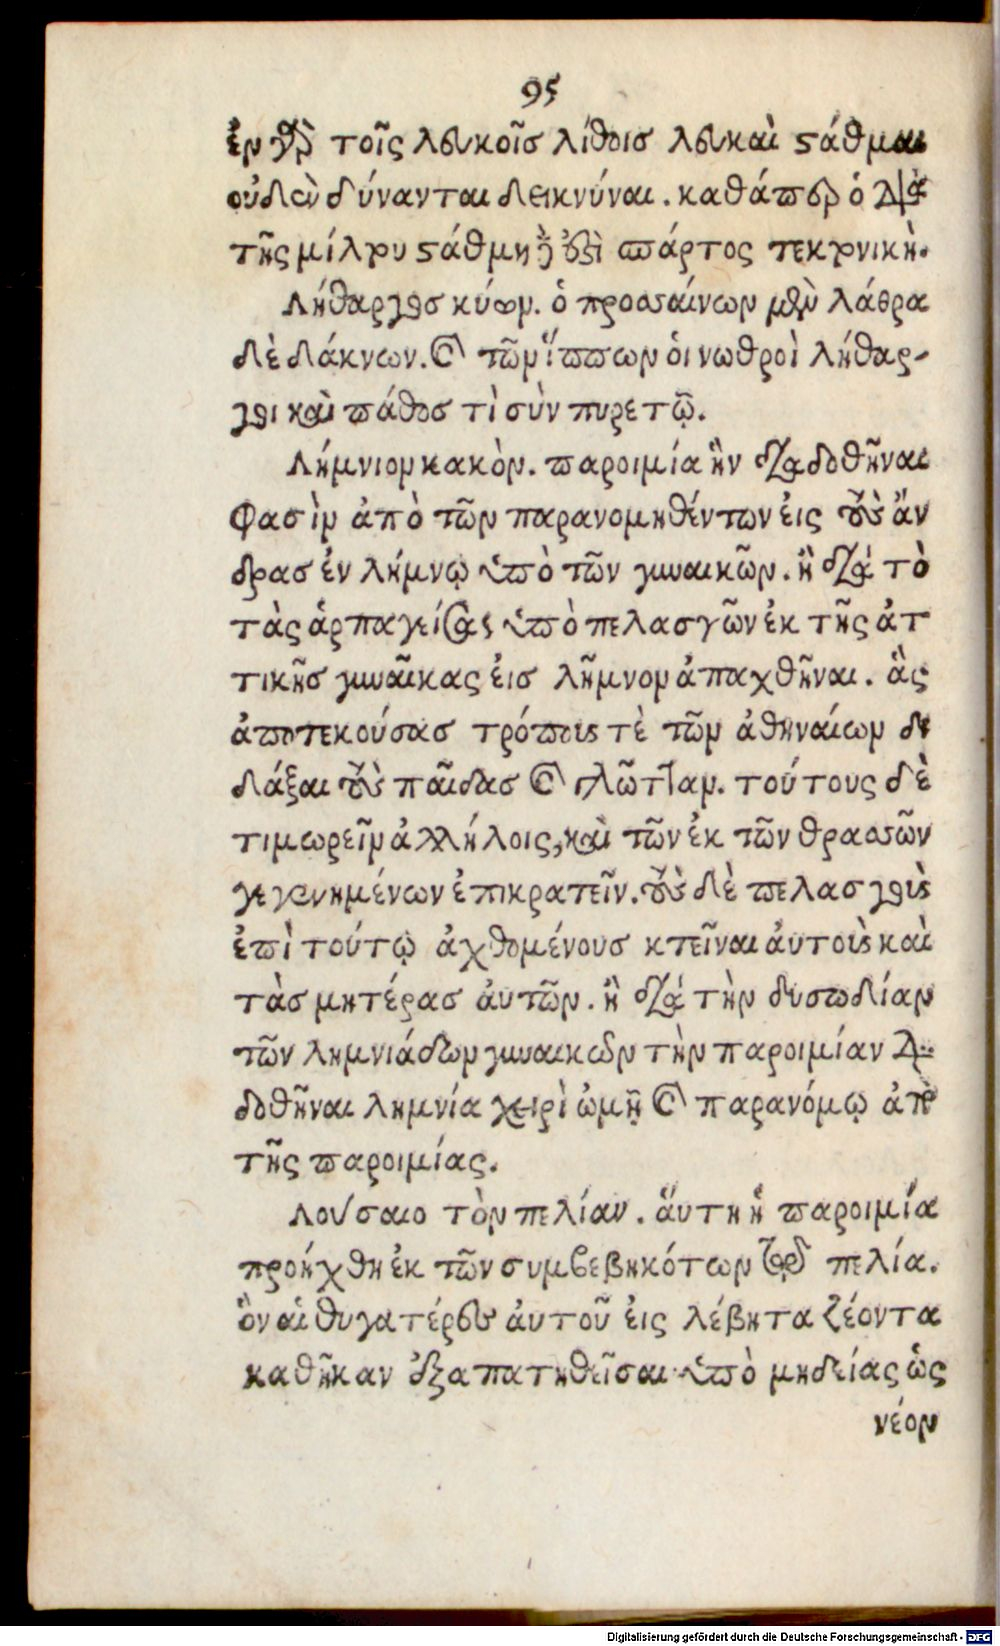 95
ἐν γὰρ τοῖς λευκοῖσ λίθοισ λευκαὶ στάθμαι
οὐδὲν δύνανται δεικνύναι. καθάπερ ὁ διὰ
τῆς μίλτου στάθμη ἐστὶ σπάρτος τεκτονικὴ.
Λήθαργοσ κύων. ὁ προσσαίνων μὲν λάθρα
δὲ δάκνων. καὶ τῶν ἵππων ὁι νωθροὶ λήθαρ-
γοι καὶ πάθοσ τὶ σὺν πυρετῷ.
Λήμνιον κακὸν. παροιμία ἣν διαδοθῆναι
φασὶν ἀπὸ τῶν παρανομηθέντων ἐις τοὺς ἄν
δρασ ἐν λήμνῳ ὑπὸ τῶν γυναικῶν. ἢ διὰ τὸ
τὰς ἁρπαγείσας ὑπὸ πελασγῶν ἐκ τῆς ἀτ
τικῆσ γυναῖκας ἐισ λῆμνον ἀπαχθῆναι. ἃς
ἀποτεκούσασ τρόπους τὲ τῶν ἀθηναίων δι
δάξαι τοὺς παῖδασ καὶ γλῶτταν. τούτους δὲ
τιμωρεῖν ἀλλήλοις, καὶ τῶν ἐκ τῶν θρασσῶν
γεγενημένων ἐπικρατεῖν. τοὺς δὲ πελασγοὺς
ἐπὶ τούτῳ ἀχθομένουσ κτεῖναι ἀυτοὺς καὶ
τὰσ μητέρασ ἀυτῶν. ἢ διὰ τὴν δυσωδίαν
τῶν λημνιάδων γυναικῶν τὴν παροιμίαν δια
δοθῆναι λημνία χειρὶ ὠμῇ καὶ παρανόμῳ ἀπὸ
τῆς παροιμίας.
Λούσαιο τὸν πελίαν. ἅυτη ἡ παροιμία
προήχθη ἐκ τῶν συμβεβηκότων τῷ πελία.
ὃν αἱ θυγατέρες ἀυτοῦ ἐις λέβητα ζέοντα
καθῆκαν ἐξαπατηθεῖσαι ὑπὸ μηδείας ὡς
νέον
Digitalisierung gefördert durch die Deutsche Forschungsgemeinschaft - DFG